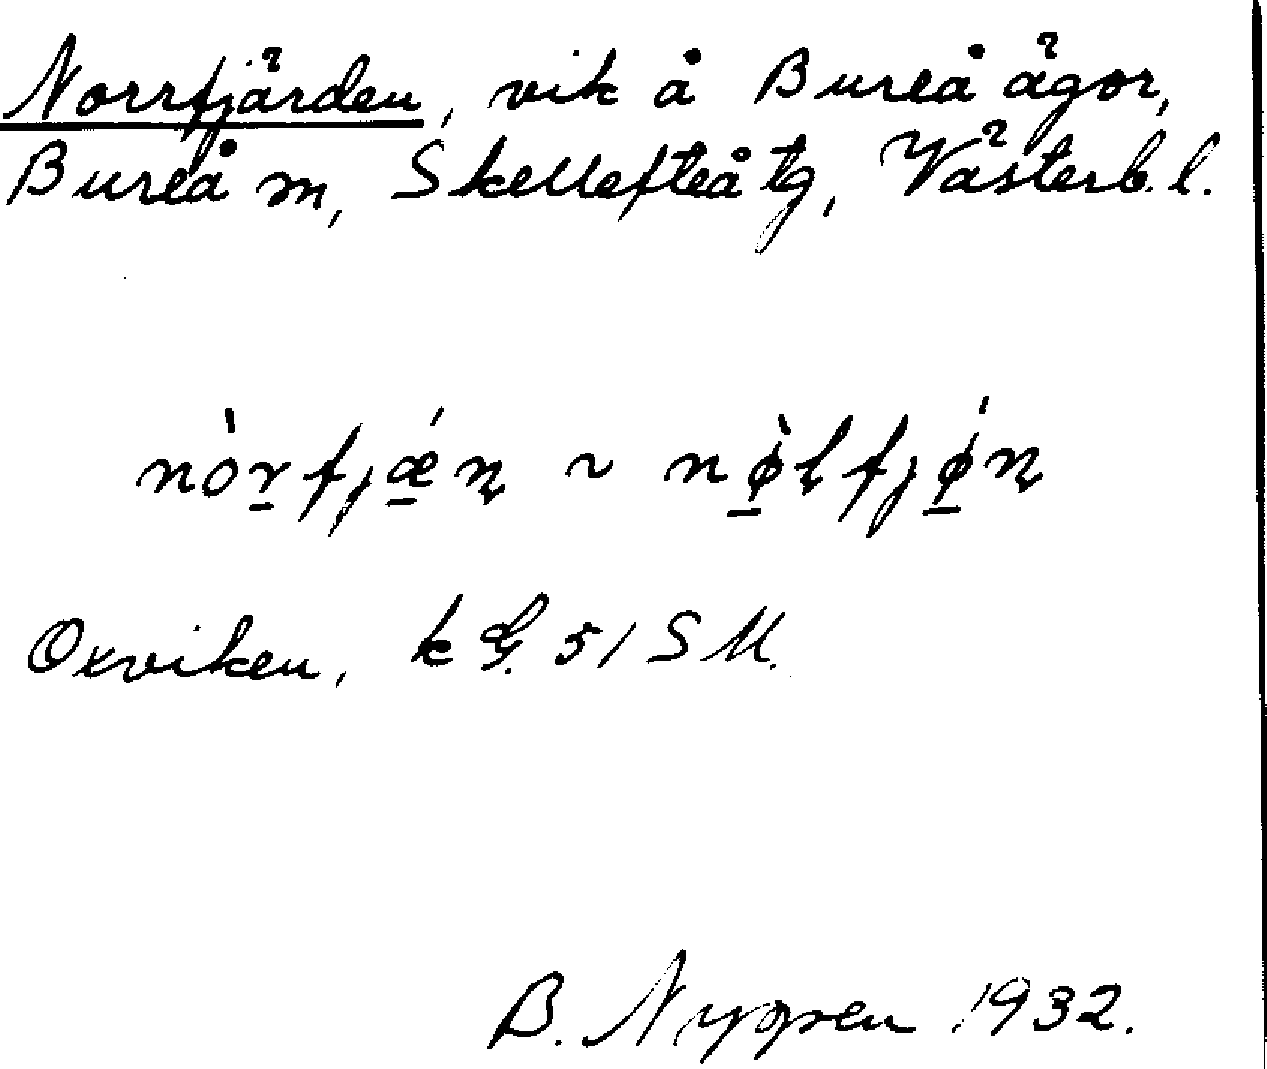 Norrfjärden, vik å Bureå ägor,
Bureå m, Skellefteå tg, Västerb. l.
nòr̲fjǽ̲ɳ ~ nø̲̀ɭfjǿ̲ɳ
Oxviken, k G. 51 SM.
B. Nygren 1932.